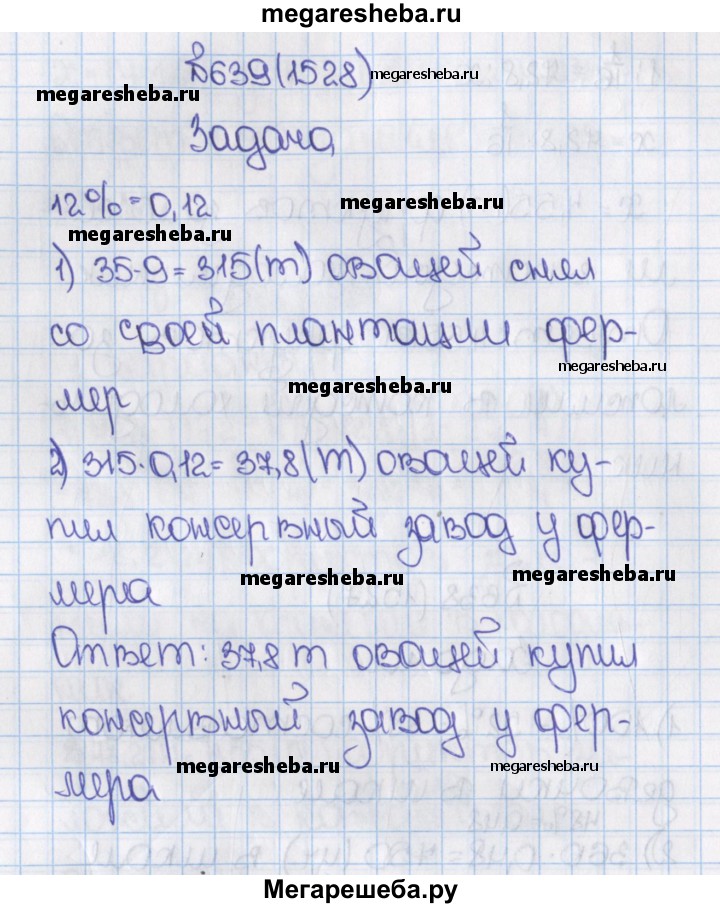 megaresheba.ru
№639(1528) megaresheba.ru
megaresheba.ru
Задача
12%=0,12 megaresheba.ru
megaresheba.ru
1) 35·9=315(т) овощей снял
со своей плантации фер-
megaresheba.ru
мер megaresheba.ru
2) 315·0,12=37,8(т) овощей ку-
пил консервный завод у фер-
megaresheba.ru megaresheba.ru
мера
Ответ: 37,8 т овощей купил
консервный завод у фер-
megaresheba.ru megaresheba.ru
мера
Мегарешеба.ру